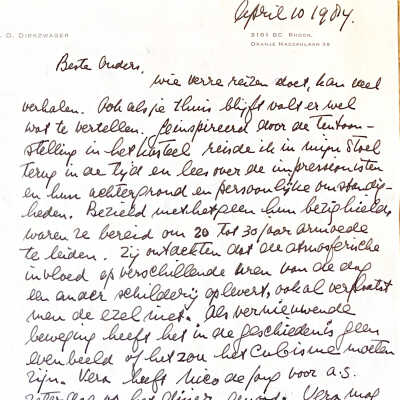 April 10 1984.
. D. Dirkzwager
3161 BC Rhoon,
Oranje Nassaulaan 28
Beste Ouders,
wie verre reizen doet, kan veel
verhalen. Ook als je thuis blijft valt er wel
wat te vertellen. Geïnspireerd door de tentoon-
stelling in het kasteel reisde ik in mijn stoel
terug in de tijd en lees over de impressionisten
en hun achtergrond en persoonlijke omstandig-
heden. Bezield met hetgeen hun bezig hield,
waren ze bereid om 20 tot 30 jaar armoede
te leiden. Zij ontdekten dat de atmosferische
invloed op verschillende uren van de dag
een ander schilderij oplevert, ook al verplaatst
men de ezel niet. Als vernieuwende
beweging heeft het in de geschiedenis geen
evenbeeld of het zou het Cubisme moeten
zijn. Vera heeft Nico de Jong voor a.s.
zaterdag op het diner genood. Vera mag